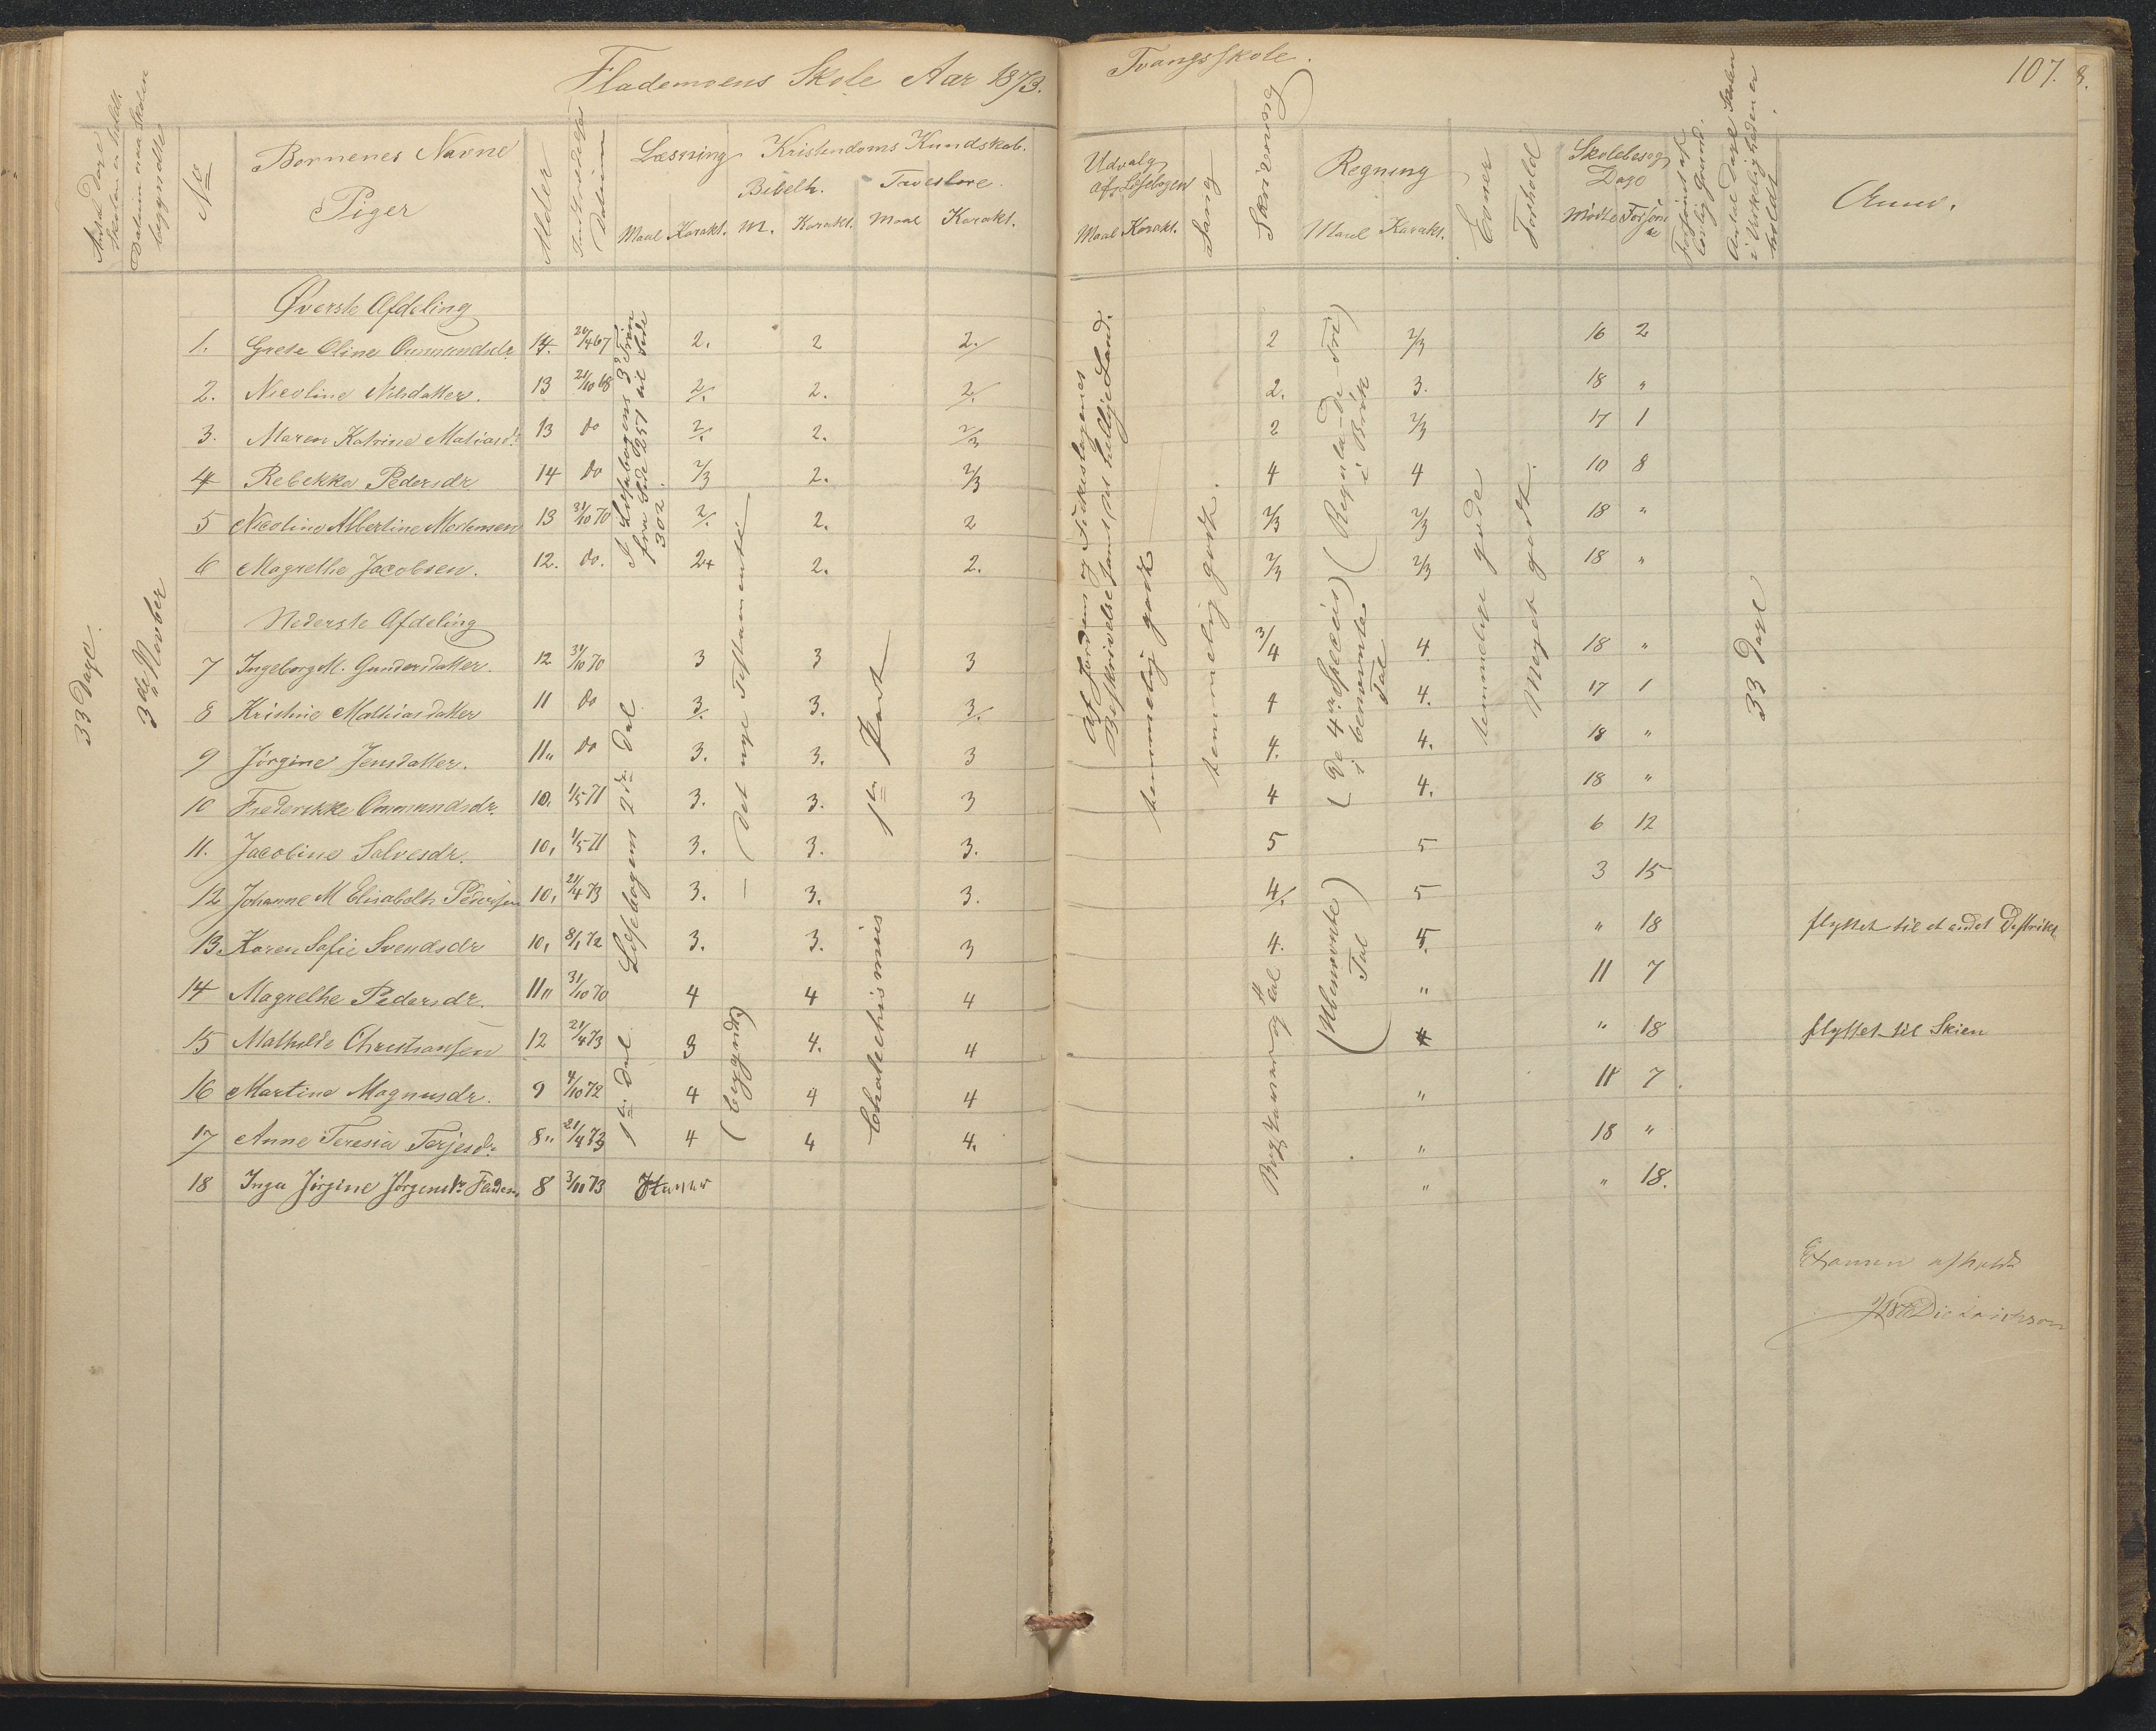 Flademoens Skole Aar 1873. Tvangsskole. 107. 8.
Skolen er holdt.
Datum naar Skolen begyndte
No
Børnenes Navne
Piger
Alder
Datum
Læsning
Maal Karakt.
Kristendoms Kundskab.
Bibelh. Troeslære.
M. Karakt. Maal Karakt.
Udvalg af Læsebogen
Maal Karakt.
Sang
Skrivning
Regning
Maal Karakt.
Evner
Forhold
Skolebesøg
Dage
Mødte Forsømte
Antal Dage Skolen i Virkeligheden er holdt.
Anm.
33 Dage.
3de Novber
Øverste Afdeling
1. Grete Oline Ommundsdr. 14. 24/4 67 2. 2 2/. 2 2/3 16 2
2. Nicoline Nilsdatter. 13 21/10 68 2/. 2. 2/. 2. 3. 18 "
3. Maren Katrine Matiasdr. 13 do 2/. 2. 2/3 2 2/3 17 1
4 Rebekka Pedersdr 14 do 2/3 2. 2/3 4 4 10 8
5 Nicoline Albertine Mortensen 13 31/10 70 2/. 2. 2 2/3 2/3 18 "
6 Magrethe Jacobsen. 12. do. 2+ 2. 2. 2/3 2/3 18 "
Nederste Afdeling
7 Ingeborg M. Gundersdatter. 12 31/10 70 3 3 3 3/4 4 18 "
8 Kristine Mathiasdatter 11 do 3/. 3. 3/. 4 4. 17 1
9 Jørgine Jensdatter. 11" do 3. 3. 3 4. 4. 18 "
10 Frederikke Ommundsdr. 10. 1/5 71 3. 3. 3 4 4. 18 "
11. Jacobine Salvesdr. 10, 1/5 71 3. 3. 3. 5 5 6 12
12 Johanne M Elisabeth Pedersen 10, 21/4 73 3. 3. 3. 4/. 5 3 15
13. Karen Sofie Svendsdr 10, 8/1 72 3. 3. 3 4. 5. " 18 flyttet til et andet Destrikt
14 Magrethe Pedersdr. 11" 31/10 70 4 4 4 " 11 7
15 Mathilde Christiansen 12 21/4 73 3 4. 4 4 " 18 flyttet til Skien
16 Martine Magnusdr. 9 4/10 72 4 4 4 " 11 7
17 Anne Teresia Terjesdr. 8" 21/4 73 4 4 4. " 18 "
18 Inga Jørgine Jørgensdr. Fladem. 8 3/11 73 " " 18.
I Læsebogens 3die Trin fra Side 257 til Side 302.
Læsebogens 2den Del
1ste Del
(Det nye Testamente
(begyndt)
1ste Part
Chatechismus
Af Jordens og
Beskrivelse samt det hellige Land.
temmelig godt
temmelig godt.
Bogstaver og Tal
(Regula-de-tri) i Brøk
(De 4re Species) i benævnte Tal
(Ubenævnte) Tal
temmelige gode
Meget godt.
33 Dage
Examen afholdt